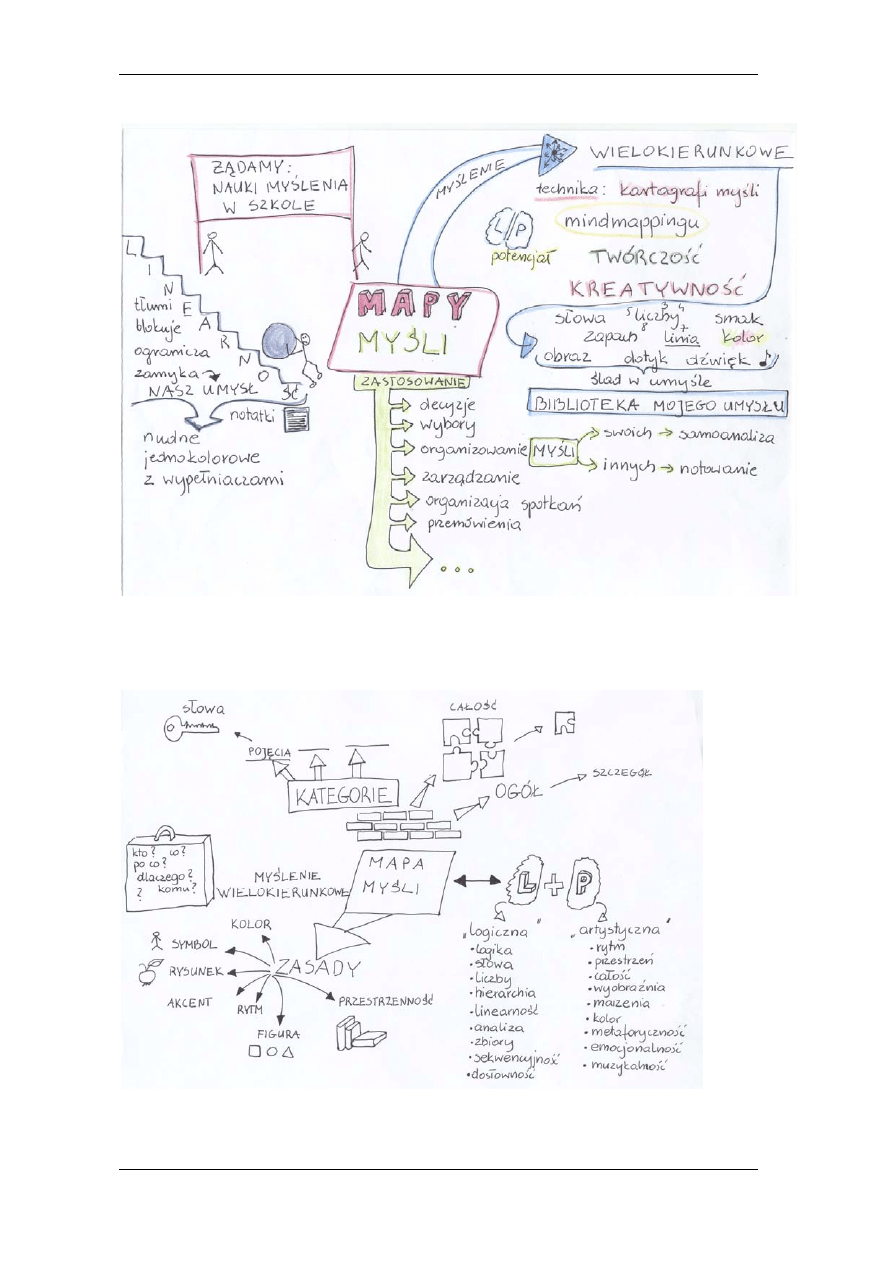 ŻĄDAMY:
NAUKI MYŚLENIA
W SZKOLE
LINEARNOŚĆ
tłumi
blokuje
ogranicza
zamyka
NASZ UMYSŁ
notatki
nudne
jednokolorowe
z wypełniaczami
MAPY
MYŚLI
MYŚLENIE
WIELOKIERUNKOWE
technika: kartagrafi myśli
mindmappingu
L/P
potencjał
TWÓRCZOŚĆ
KREATYWNOŚĆ
słowa 5 liczby 3 4 smak
zapach 8 linia 7 kolor
obraz dotyk dźwięk
ślad w umyśle
BIBLIOTEKA MOJEGO UMYSŁU
ZASTOSOWANIE
decyzje
wybory
organizowanie MYŚLI
swoich samoanaliza
innych notowanie
zarządzanie
organizacja spotkań
przemówienia
...
słowa
POJĘCIA
KATEGORIE
CAŁOŚĆ
OGÓŁ
SZCZEGÓŁ
kto? co?
po co?
dlaczego?
? komu?
MYŚLENIE
WIELOKIERUNKOWE
MAPA
MYŚLI
L + P
ZASADY
KOLOR
SYMBOL
RYSUNEK
AKCENT
RYTM
FIGURA
PRZESTRZENNOŚĆ
„logiczna"
• logika
• słowa
• liczby
• hierarchia
• linearność
• analiza
• zbiory
• sekwencyjność
• dosłowność
„artystyczna"
• rytm
• przestrzeń
• całość
• wyobraźnia
• marzenia
• kolor
• metaforyczność
• emocjonalność
• muzykalność